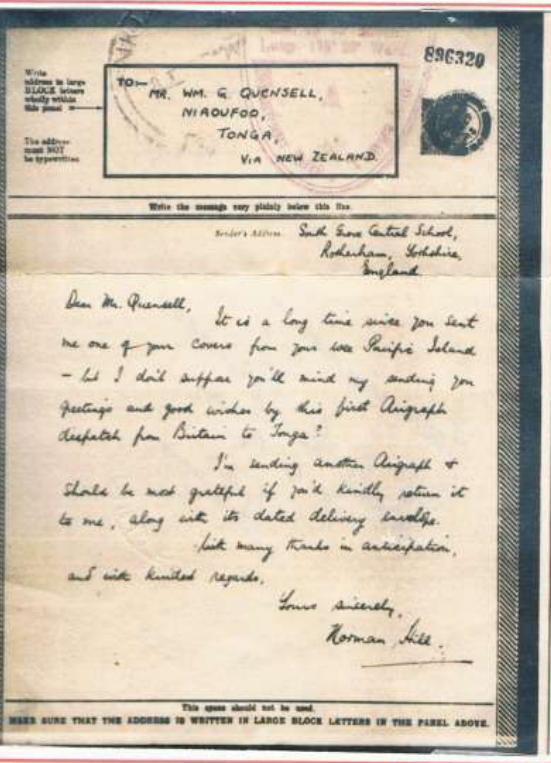 896320
Write
address in large
BLOCK letters
wholly within
this panel
The address
must NOT
be typewritten
TO:—
MR. WM. G. QUENSELL,
NIAOUFOO,
TONGA,
VIA NEW ZEALAND.
Write the message very plainly below this line.
Sender's Address
South Grove Central School,
Rotherham, Yorkshire,
England
Dear Mr. Quensell,
It is a long time since you sent
me one of your covers from your wee Pacific Island
- but I don't suppose you'll mind my sending you
greetings and good wishes by this first Airgraph
despatch from Britain to Tonga?
I'm sending another Airgraph &
should be most grateful if you'd kindly return it
to me, along with its dated delivery envelope.
With many thanks in anticipation,
and with kindest regards,
Yours sincerely,
Norman Hill.
This space should not be used.
MAKE SURE THAT THE ADDRESS IS WRITTEN IN LARGE BLOCK LETTERS IN THE PANEL ABOVE.